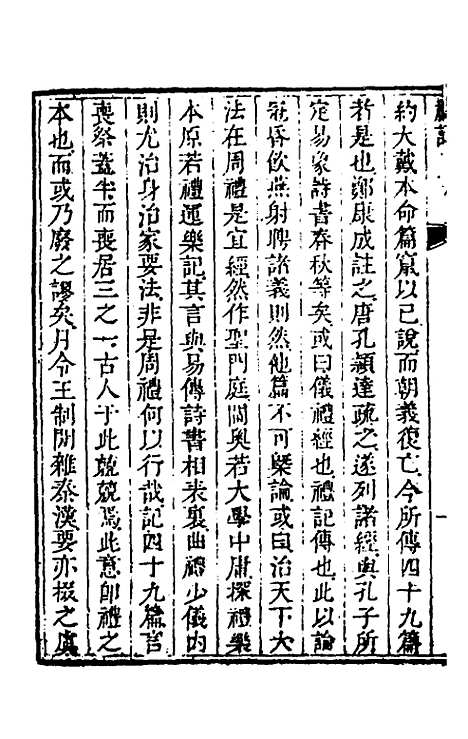 約大戴本命篇竄以已說而朝義復亡今所傳四十九篇
者是也鄭康成註之唐孔穎達疏之遂列諸經與孔子所
定易象詩書春秋等矣或曰儀禮經也禮記傳也此以論
冠昏飲燕射聘諸義則然他篇不可槩論或曰治天下大
法在周禮是宜經然作聖門庭閫奧若大學中庸探禮樂
本原若禮運樂記其言與易傳詩書相表裏曲禮少儀內
則尤治身治家要法非是周禮何以行哉記四十九篇言
喪祭蓋半而喪居三之一古人于此兢兢焉此意即禮之
本也而或乃廢之謬矣月令王制閒雜秦漢要亦掇之虞